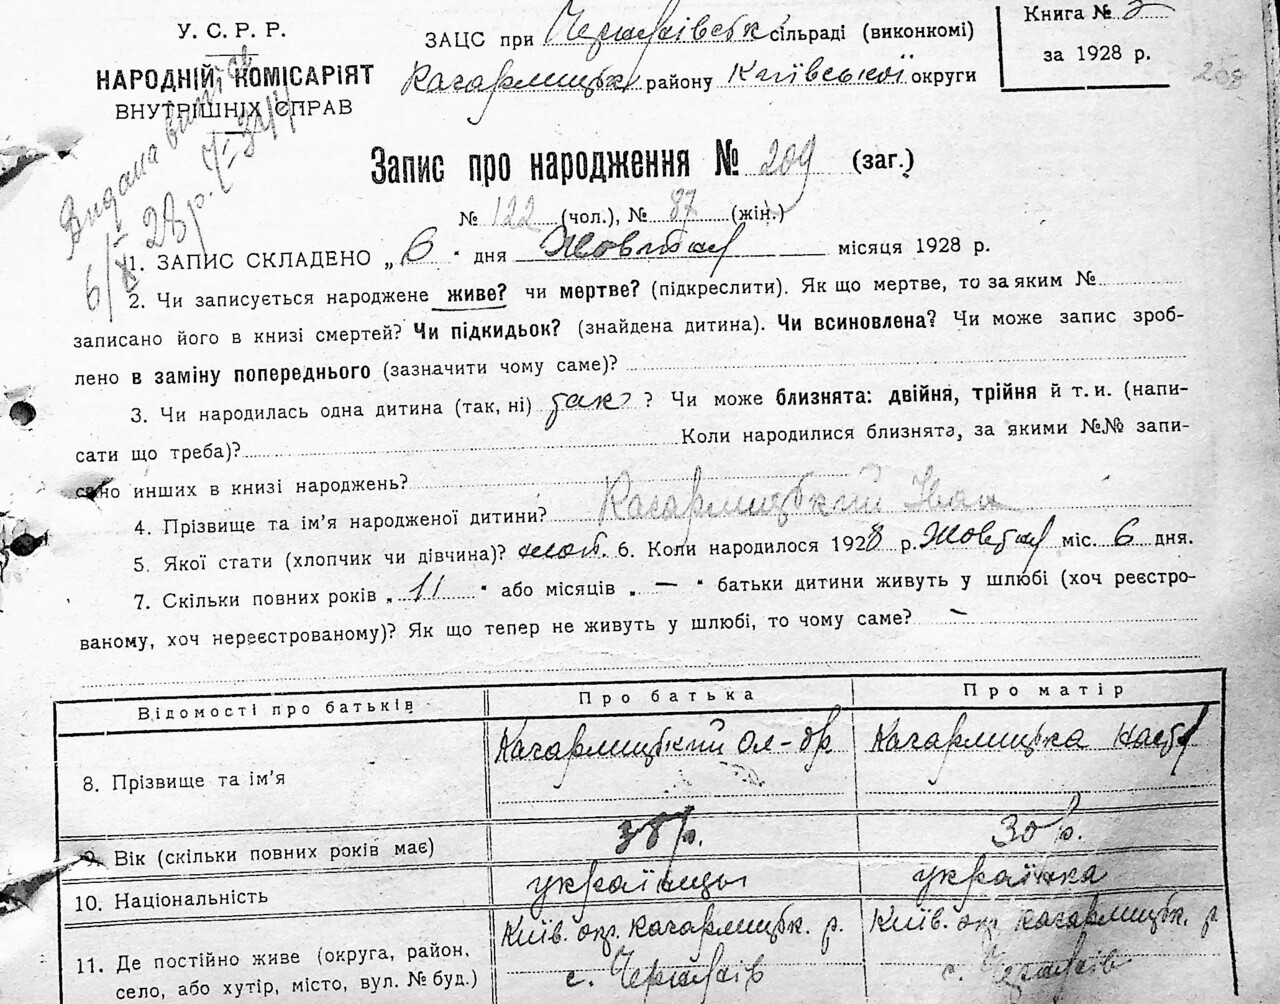 У. С. Р. Р.
НАРОДНІЙ КОМІСАРІЯТ
ВНУТРІШНІХ СПРАВ
ЗАЦС при сільраді (виконкомі)
Кагарлицьк району Київської округи
Книга №
за 1928 р.
Видана
28 р.
Запис про народження № 209 (заг.)
№ 122 (чол.), № 87 (жін.)
1. ЗАПИС СКЛАДЕНО „ 6 " дня Жовтня місяця 1928 р.
2. Чи записується народжене живе? чи мертве? (підкреслити). Як що мертве, то за яким №
записано його в книзі смертей? Чи підкидьок? (знайдена дитина). Чи всиновлена? Чи може запис зроб-
лено в заміну попереднього (зазначити чому саме)?
3. Чи народилась одна дитина (так, ні) так ? Чи може близнята: двійня, трійня й т. и. (напи-
сати що треба)? Коли народилися близнята, за якими №№ запи-
сано инших в книзі народжень?
4. Прізвище та ім'я народженої дитини? Кагарлицький Іван
5. Якої стати (хлопчик чи дівчина)? 6. Коли народилося 1928 р. Жовтня міс. 6 дня.
7. Скільки повних років „ 11 " або місяців „ — " батьки дитини живуть у шлюбі (хоч реєстро-
ваному, хоч нереєстрованому)? Як що тепер не живуть у шлюбі, то чому саме? —
Відомості про батьків Про батька Про матір
8. Прізвище та ім'я Кагарлицький Ол-др Кагарлицька Настя
9. Вік (скільки повних років має) 30 р.
10. Національність українцы українка
11. Де постійно живе (округа, район, Київ. окр. Кагарлицьк. р. Київ. окр. Кагарлицьк. р
село, або хутір, місто, вул. № буд.) с. с.